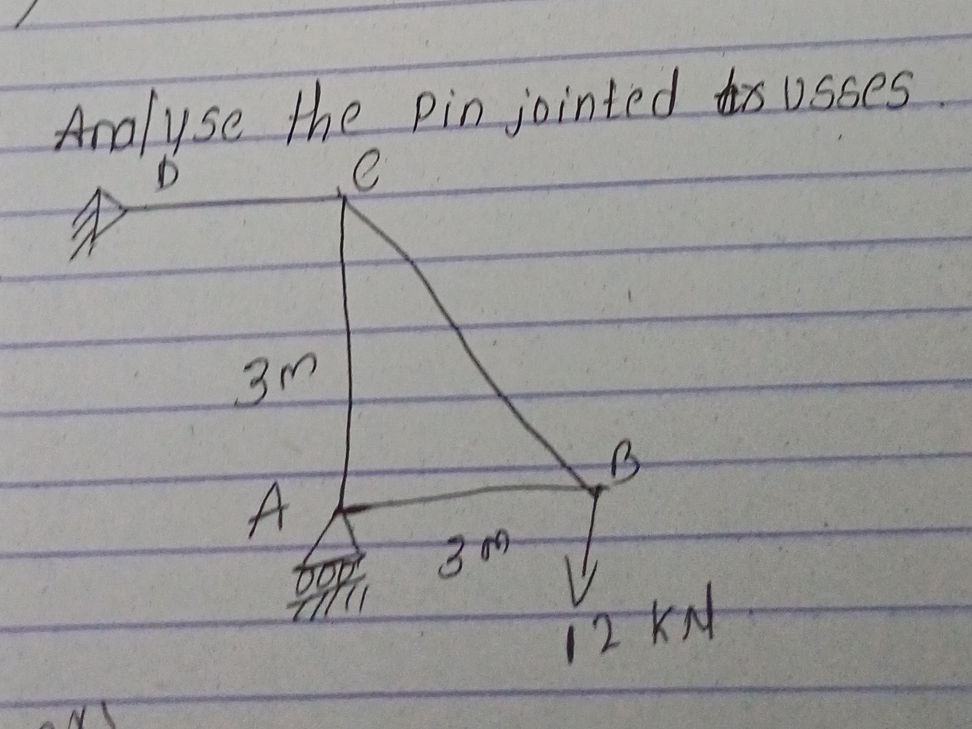 Analyse the pin jointed trusses.
D
C
3m
B
A
3m
12 KN